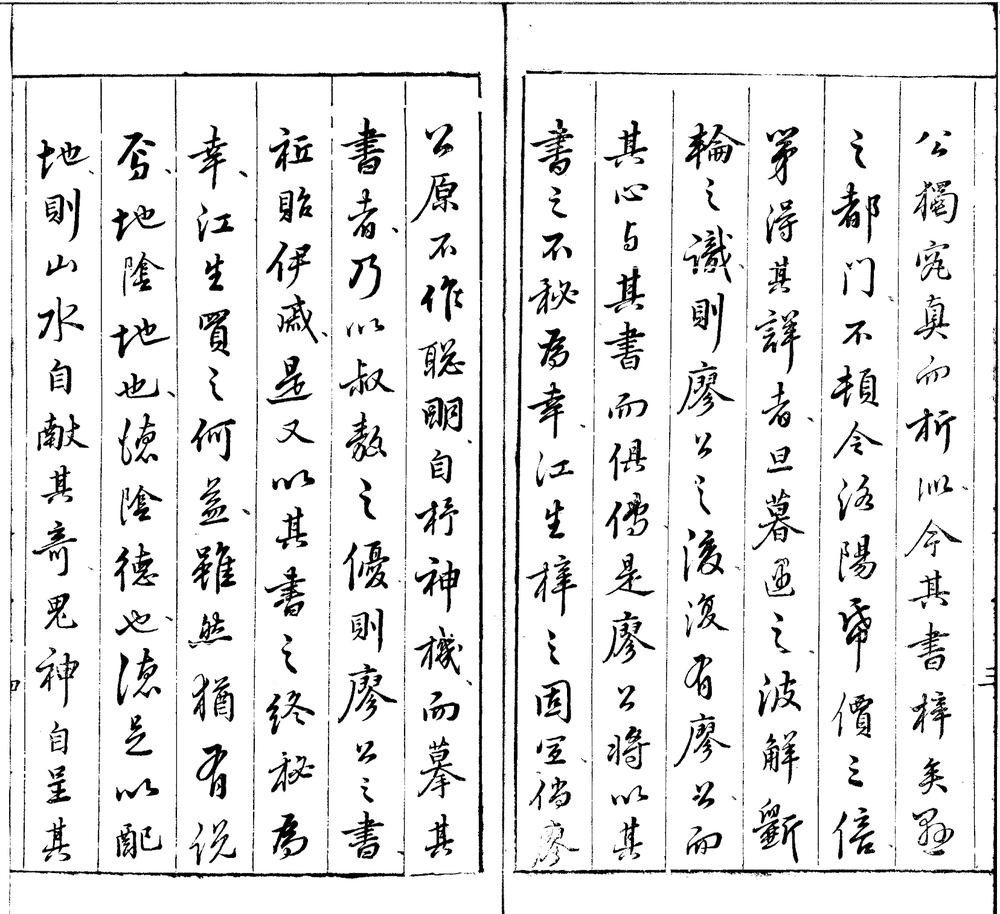 公獨究真而析訛今其書梓矣懸
之都門不頓令洛陽帋價之倍
第得其詳者旦暮遇之波解斲
輪之識則廖公之後復有廖公而
其心与其書而俱傳是廖公將以其
書之不秘為幸江生梓之固宜倘廖
公原不作聰明自杼神機而摹其
書者乃以叔敖之優則廖公之書
祗貽伊戚是又以其書之終秘為
幸江生買之何益雖然猶有說
焉地陰地也德陰德也德足以配
地則山水自献其奇鬼神自呈其